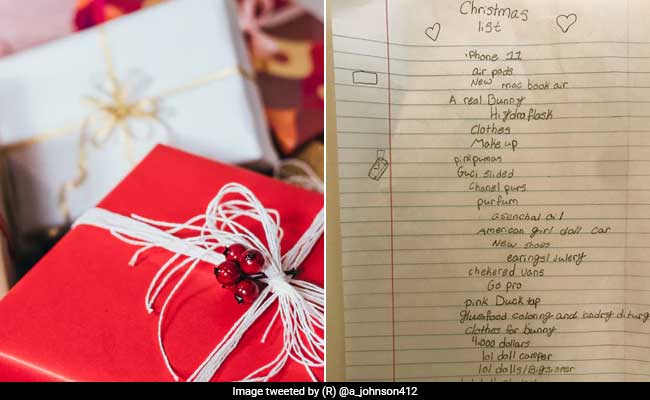 Christmas
list
iphone 11
air pods
New mac book air
A real Bunny
Hydroflask
clothes
Make up
pink pumas
Guci slided
Chanel purs
purfum
asenchal oil
American girl doll car
New shoes
earings/julery
chekered vans
Go pro
pink Duck tap
glue food coloring and londry diturg
clothes for bunny
4,000 dollars
lol doll camper
lol dolls/Bigsister
Image tweeted by (R) @a_johnson412